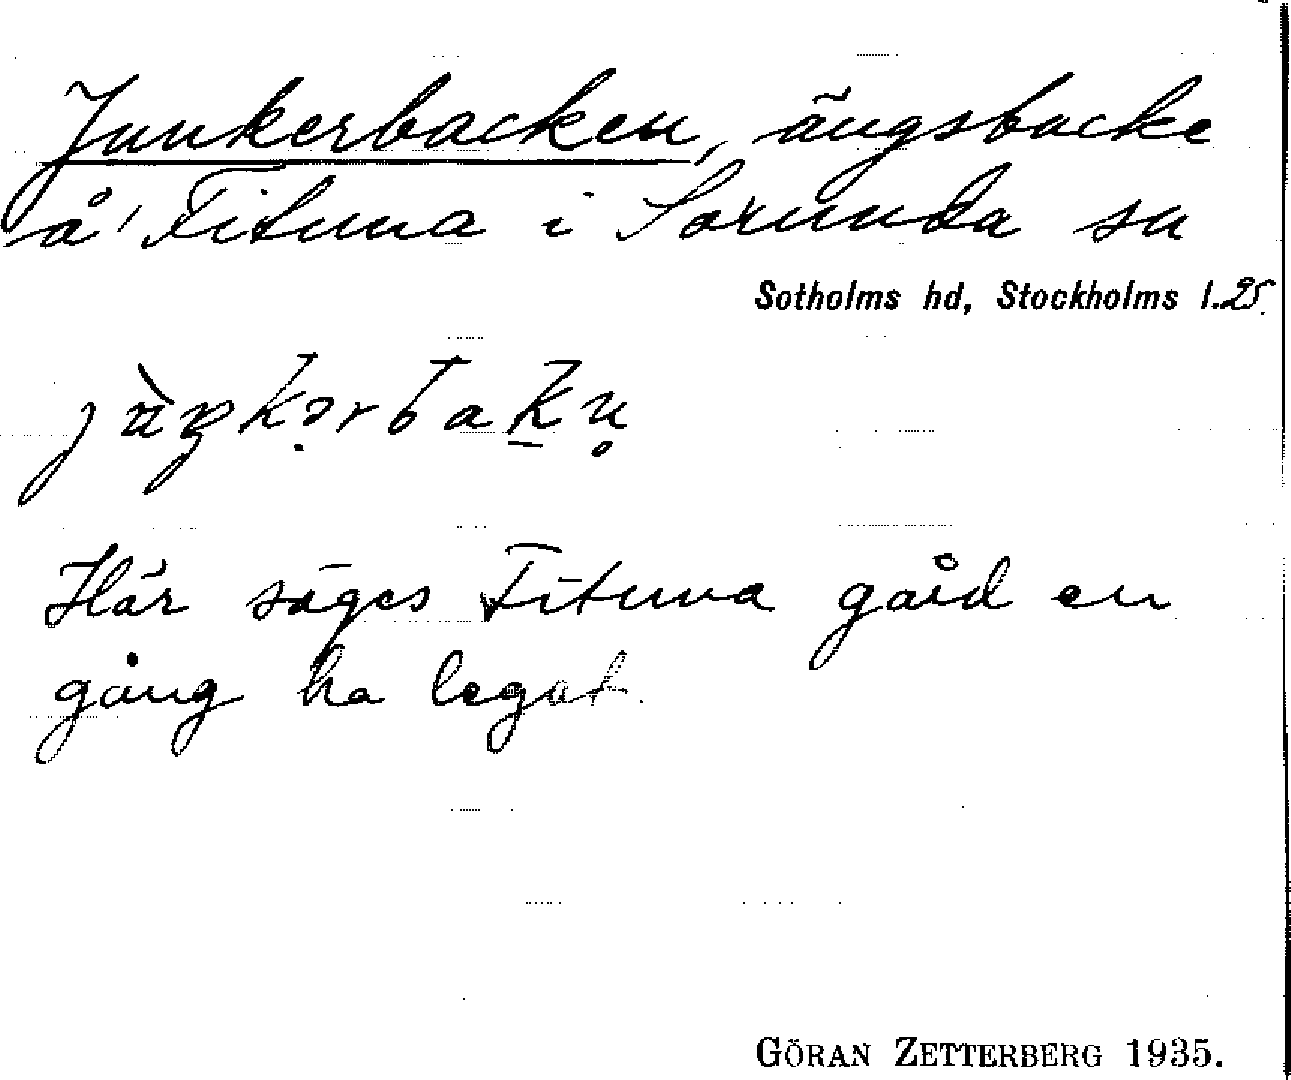 Junkerbacken, ängsbacke
å Fituna i Sorunda sn
Sotholms hd, Stockholms l. 25.
Här säges Fituna gård en
gång ha legat.
GÖRAN ZETTERBERG 1935.